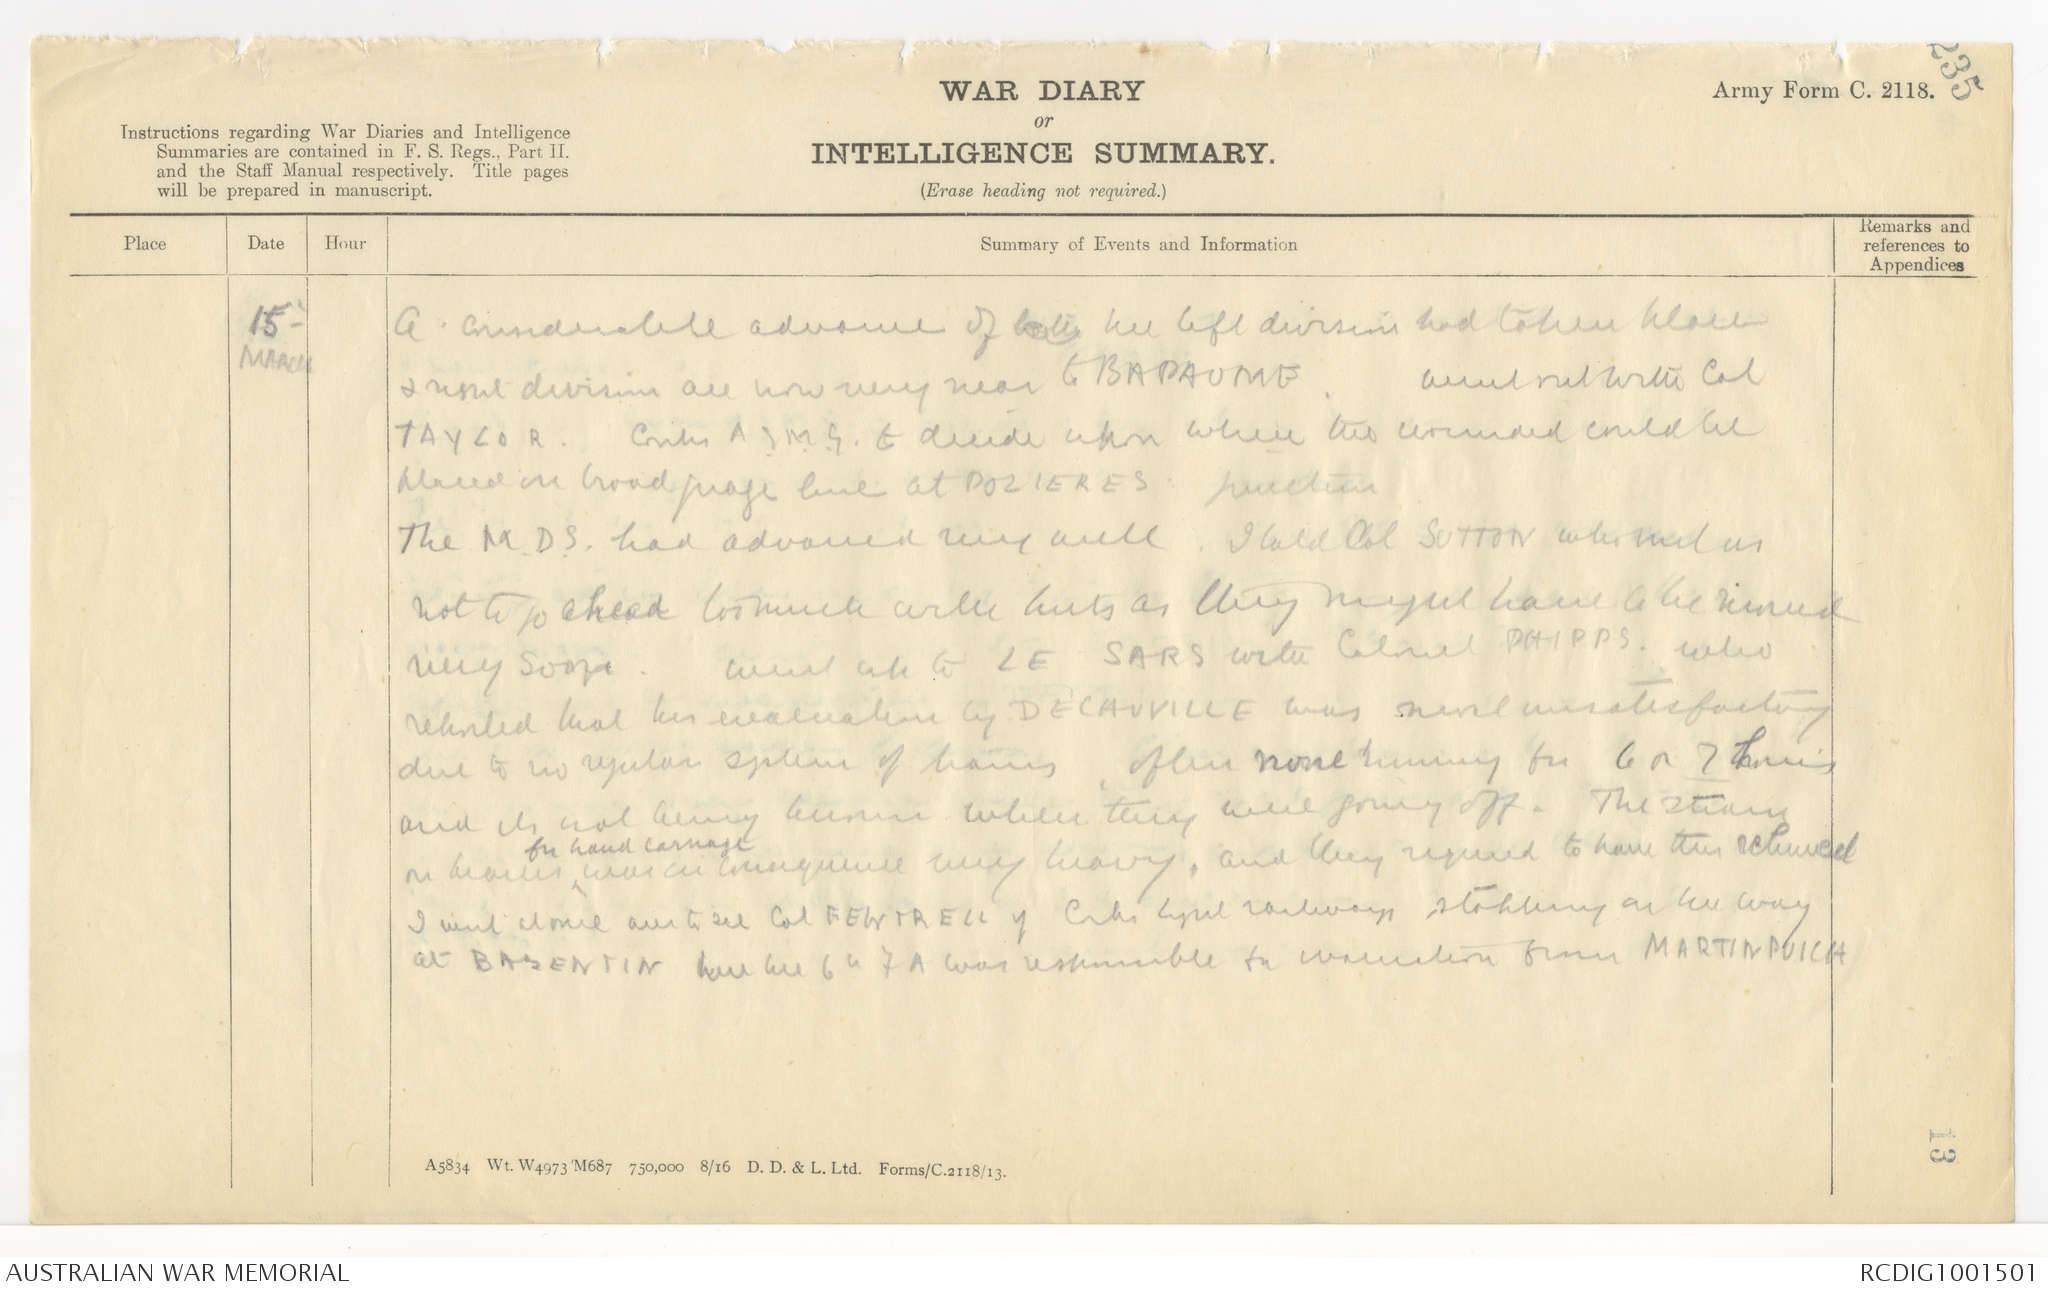 235
WAR DIARY
or
INTELLIGENCE SUMMARY.
(Erase heading not required.)
Army Form C. 2118.
Instructions regarding War Diaries and Intelligence
Summaries are contained in F. S. Regs., Part II.
and the Staff Manual respectively. Title pages
will be prepared in manuscript.
Place
Date
Hour
Summary of Events and Information
Remarks and
references to
Appendices
15
MARCH
A considerable advance of the left division had taken place
& right division are now very near to BAPAUME. went out with Col
TAYLOR. Corps A.D.M.S. to decide upon where the wounded could be
placed on broad guage line at POZIERES junction
The M.D.S. had advanced very well. I told Col SUTTON who met us
not to go ahead too much with huts as they might have to be moved
very soon. went up to LE SARS with Colonel PHIPPS. who
reported that his evacuation by DECAUVILLE was most unsatisfactory
due to no regular system of trains, often none running for 6 or 7 hours
and its not being known when they were going off. The strain
on bearers for hand carriage was in consequence very heavy, and they required to have this relieved
I went alone over to see Col FEWTRELL of Corps light railways stopping on the way
at BASENTIN here the 6th F A was responsible for evacuation from MARTINPUICH
A5834 Wt. W4973/M687 750,000 8/16 D. D. & L. Ltd. Forms/C.2118/13.
13
AUSTRALIAN WAR MEMORIAL
RCDIG1001501